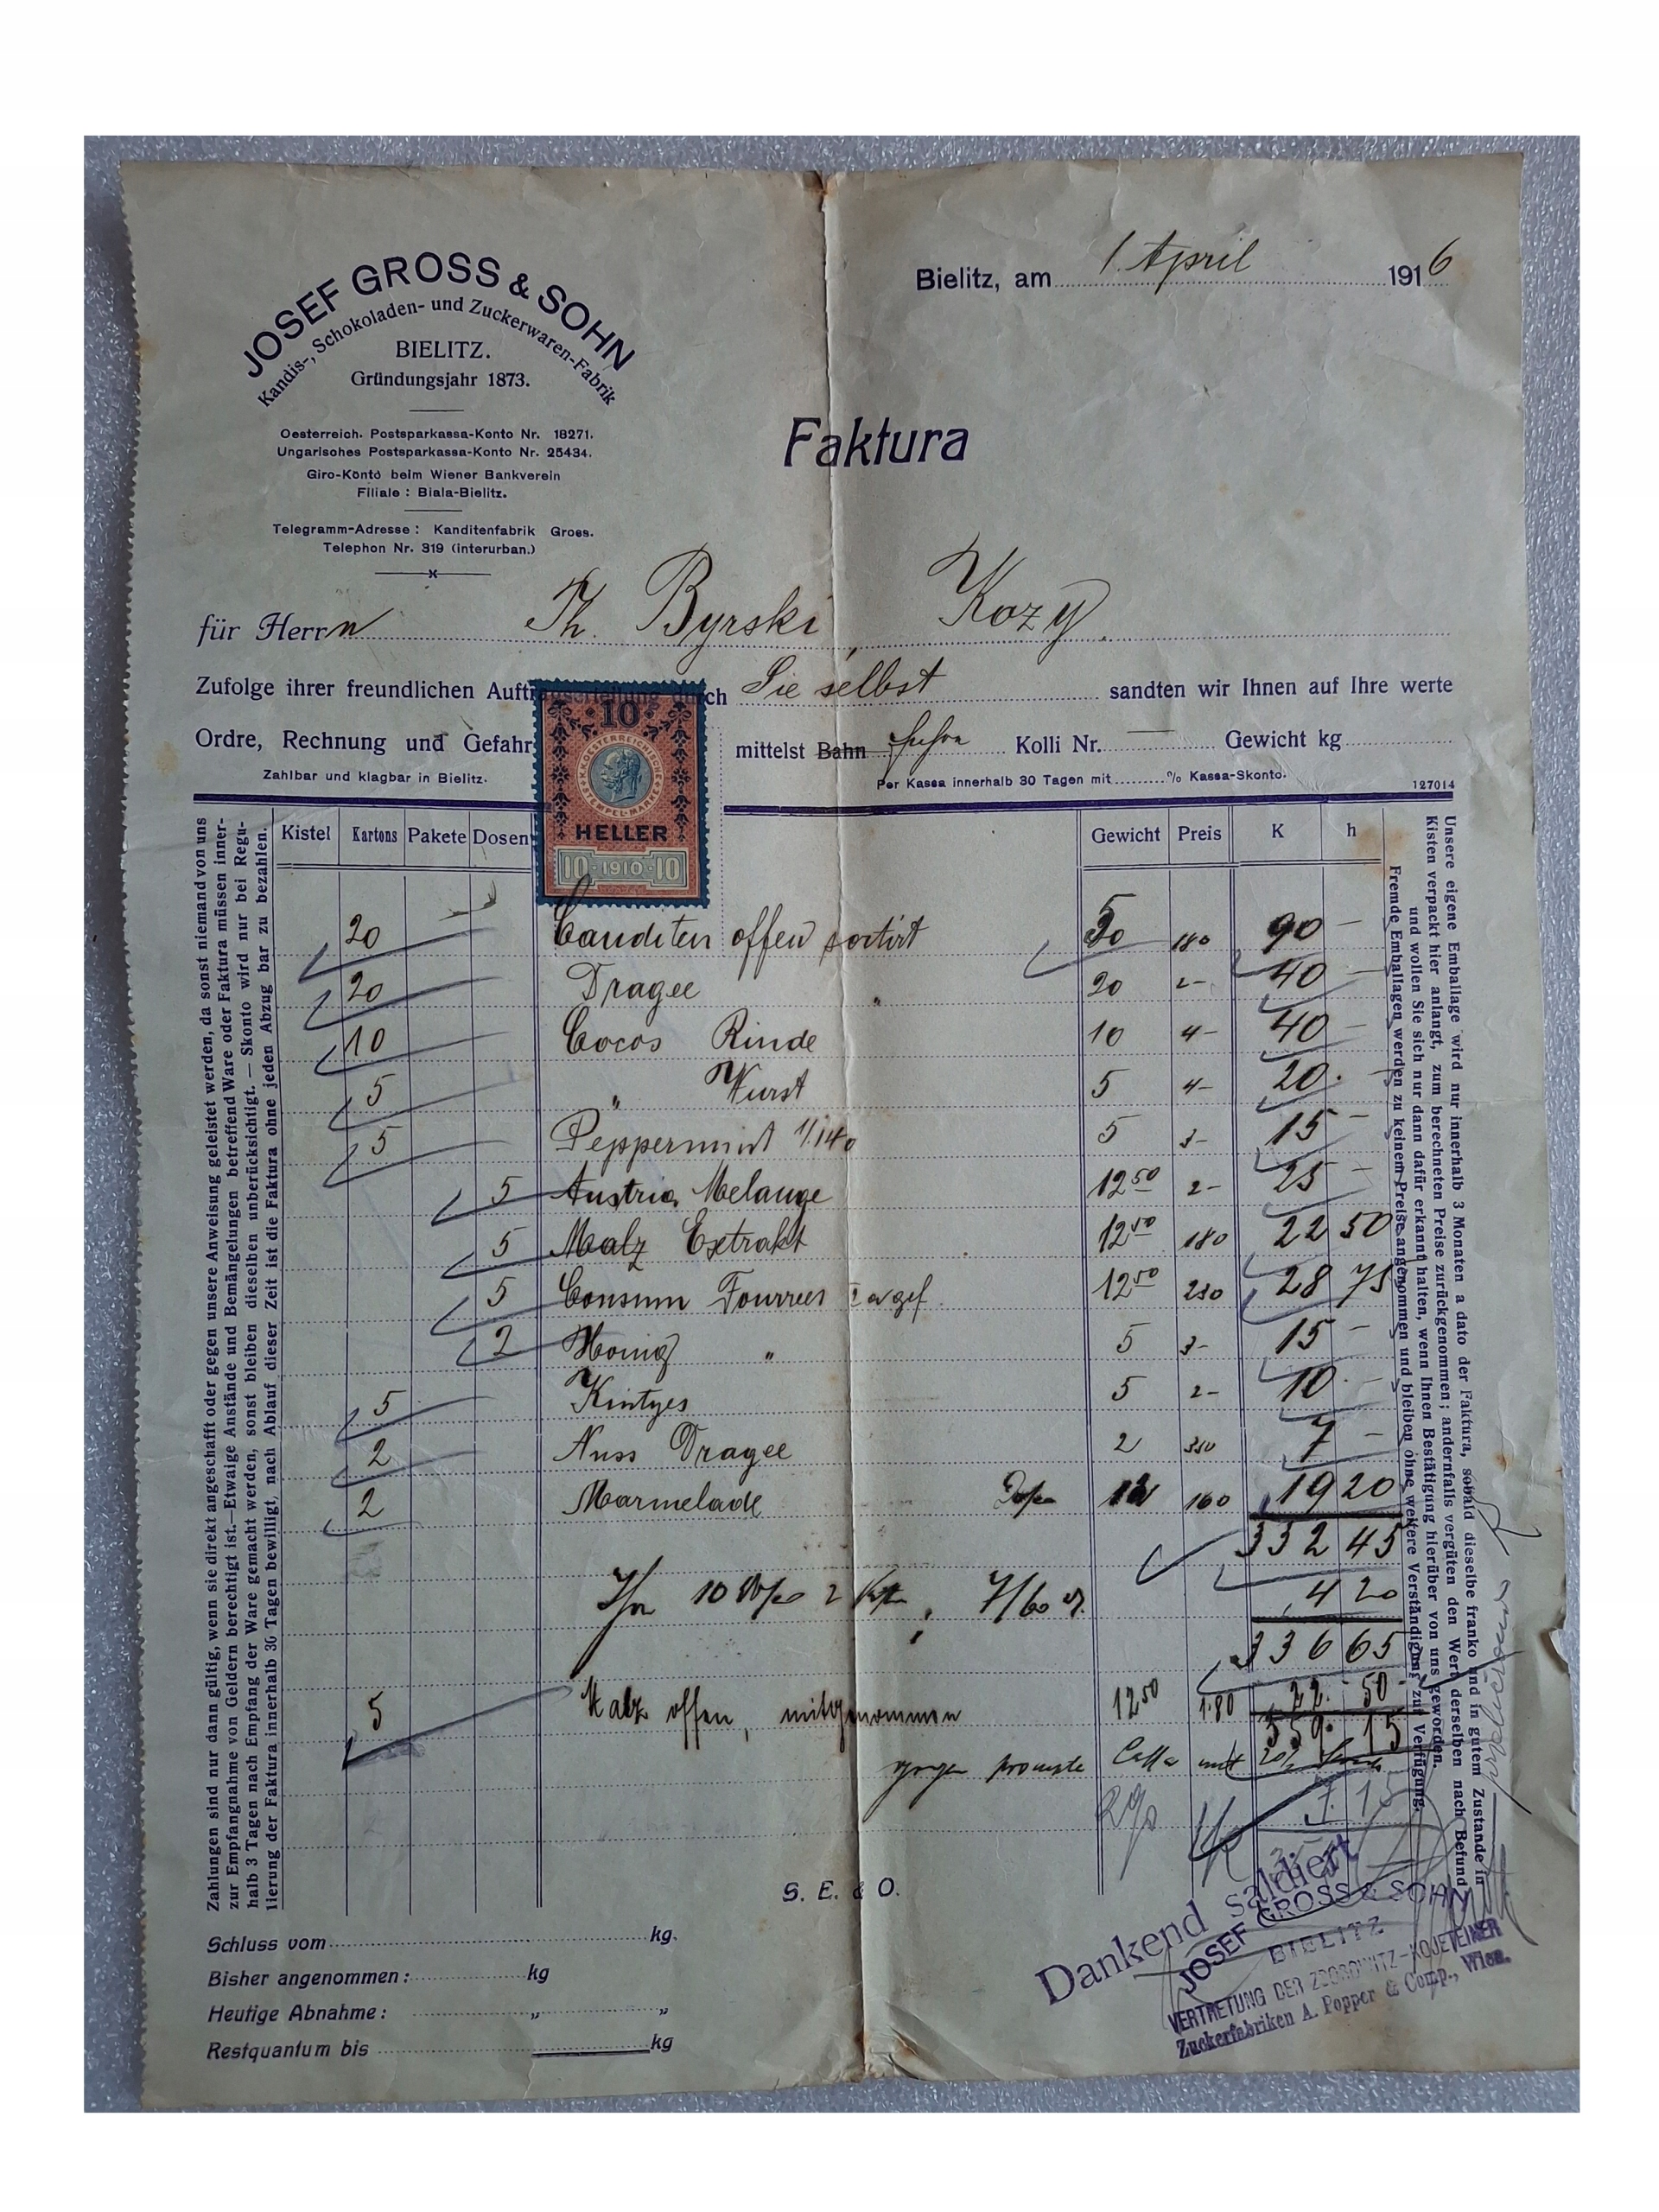 JOSEF GROSS & SOHN
Kandis-, Schokoladen- und Zuckerwaren-Fabrik
BIELITZ.
Gründungsjahr 1873.
Oesterreich. Postsparkassa-Konto Nr. 18271.
Ungarisches Postsparkassa-Konto Nr. 25434.
Giro-Konto beim Wiener Bankverein
Filiale: Biala-Bielitz.
Telegramm-Adresse: Kanditenfabrik Gross.
Telephon Nr. 319 (interurban.)
Bielitz, am 1. April 1916
Faktura
für Herrn Th. Byrski, Kozy.
Zufolge ihrer freundlichen durch Sie selbst sandten wir Ihnen auf Ihre werte
Ordre, Rechnung und Gefahr mittelst Bahn Kolli Nr. — Gewicht kg
Zahlbar und klagbar in Bielitz.
Per Kassa innerhalb 30 Tagen mit % Kassa-Skonto.
127014
10
K.K. OESTERREICHISCHE STEMPEL-MARKE
HELLER
10 · 1910 · 10
Kistel Kartons Pakete Dosen Gewicht Preis K h
20 Canditen offen sortirt 50 180 90 —
20 Dragee " 20 2- 40 —
10 Cocos Rinde 10 4- 40 —
5 " Wurst 5 4- 20. —
5 Peppermint 1/140 5 3- 15 —
5 Austria Melange 12 50 2- 25 —
5 Malz Extrakt 12 50 180 22 50
5 Consum Fourrees 12 50 230 28 75
2 Honig " 5 3- 15 —
5 Kintyes 5 2- 10. —
2 Nuss Dragee 2 350 7 —
2 Marmelade 12 160 19 20
332 45
10 2 7/60 4 20
336 65
5 Malz offen, mitgenommen 12 50 1.80 22. 50
359. 15
gegen prompte Cassa mit
S. E. & O.
Schluss vom kg.
Bisher angenommen: kg
Heutige Abnahme: „ „
Restquantum bis kg
Dankend saldiert
JOSEF GROSS & SOHN
BIELITZ
VERTRETUNG DER ZBOROWITZ-KOJETEINER
Zuckerfabriken A. Popper & Comp., Wien.
Zahlungen sind nur dann gültig, wenn sie direkt angeschafft oder gegen unsere Anweisung geleistet werden, da sonst niemand von uns
zur Empfangnahme von Geldern berechtigt ist. — Etwaige Anstände und Bemängelungen betreffend Ware oder Faktura müssen inner-
halb 3 Tagen nach Empfang der Ware gemacht werden, sonst bleiben dieselben unberücksichtigt. — Skonto wird nur bei Regu-
lierung der Faktura innerhalb 30 Tagen bewilligt, nach Ablauf dieser Zeit ist die Faktura ohne jeden Abzug bar zu bezahlen.
Unsere eigene Emballage wird nur innerhalb 3 Monaten a dato der Faktura, sobald dieselbe franko und in gutem Zustande in
Kisten verpackt hier anlangt, zum berechneten Preise zurückgenommen; andernfalls vergüten den Wert derselben nach Befund
und wollen Sie sich nur dann dafür erkannt halten, wenn Ihnen Bestätigung hierüber von uns geworden.
Fremde Emballagen werden zu keinem Preise angenommen und bleiben ohne weitere Verständigung zur Verfügung.